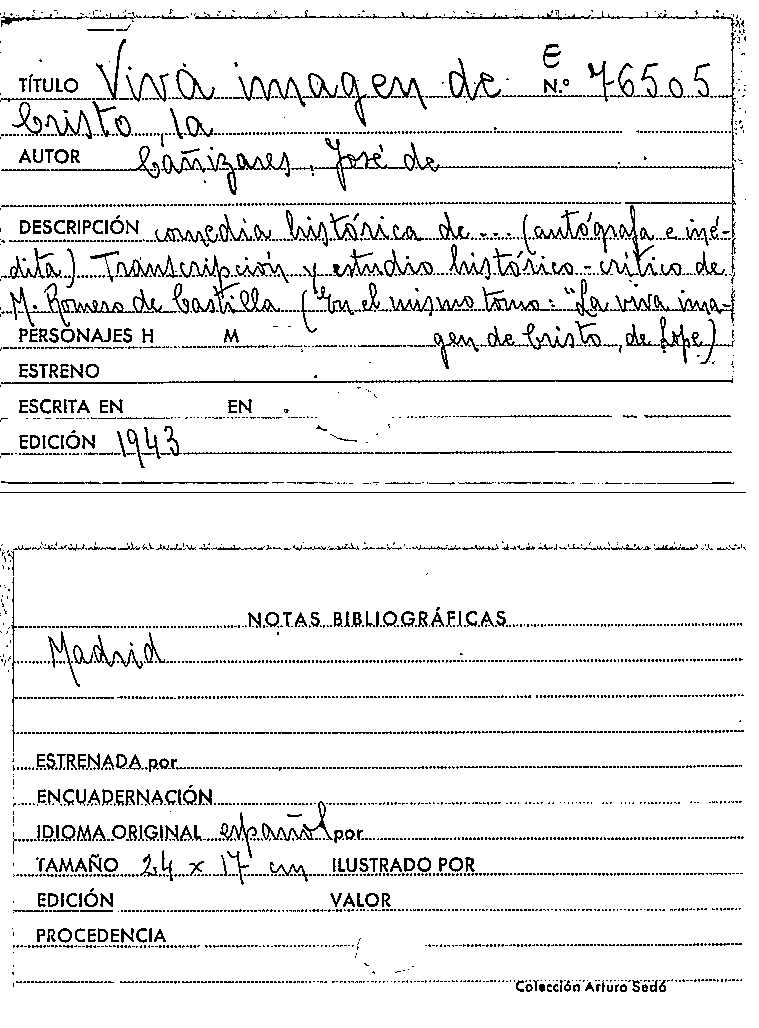 E
TÍTULO Viva imagen de N.º 76505
Cristo, la
AUTOR Cañizares, José de
DESCRIPCIÓN comedia histórica de... (autógrafa e iné-
dita) Transcripción y estudio histórico-crítico de
M. Romero de Castilla (En el mismo tomo: "La viva ima-
PERSONAJES H M gen de Cristo, de Lope)
ESTRENO
ESCRITA EN EN
EDICIÓN 1943
NOTAS BIBLIOGRÁFICAS
Madrid
ESTRENADA por
ENCUADERNACIÓN
IDIOMA ORIGINAL español por
TAMAÑO 24 x 17 cm ILUSTRADO POR
EDICIÓN VALOR
PROCEDENCIA
Colección Arturo Sedó